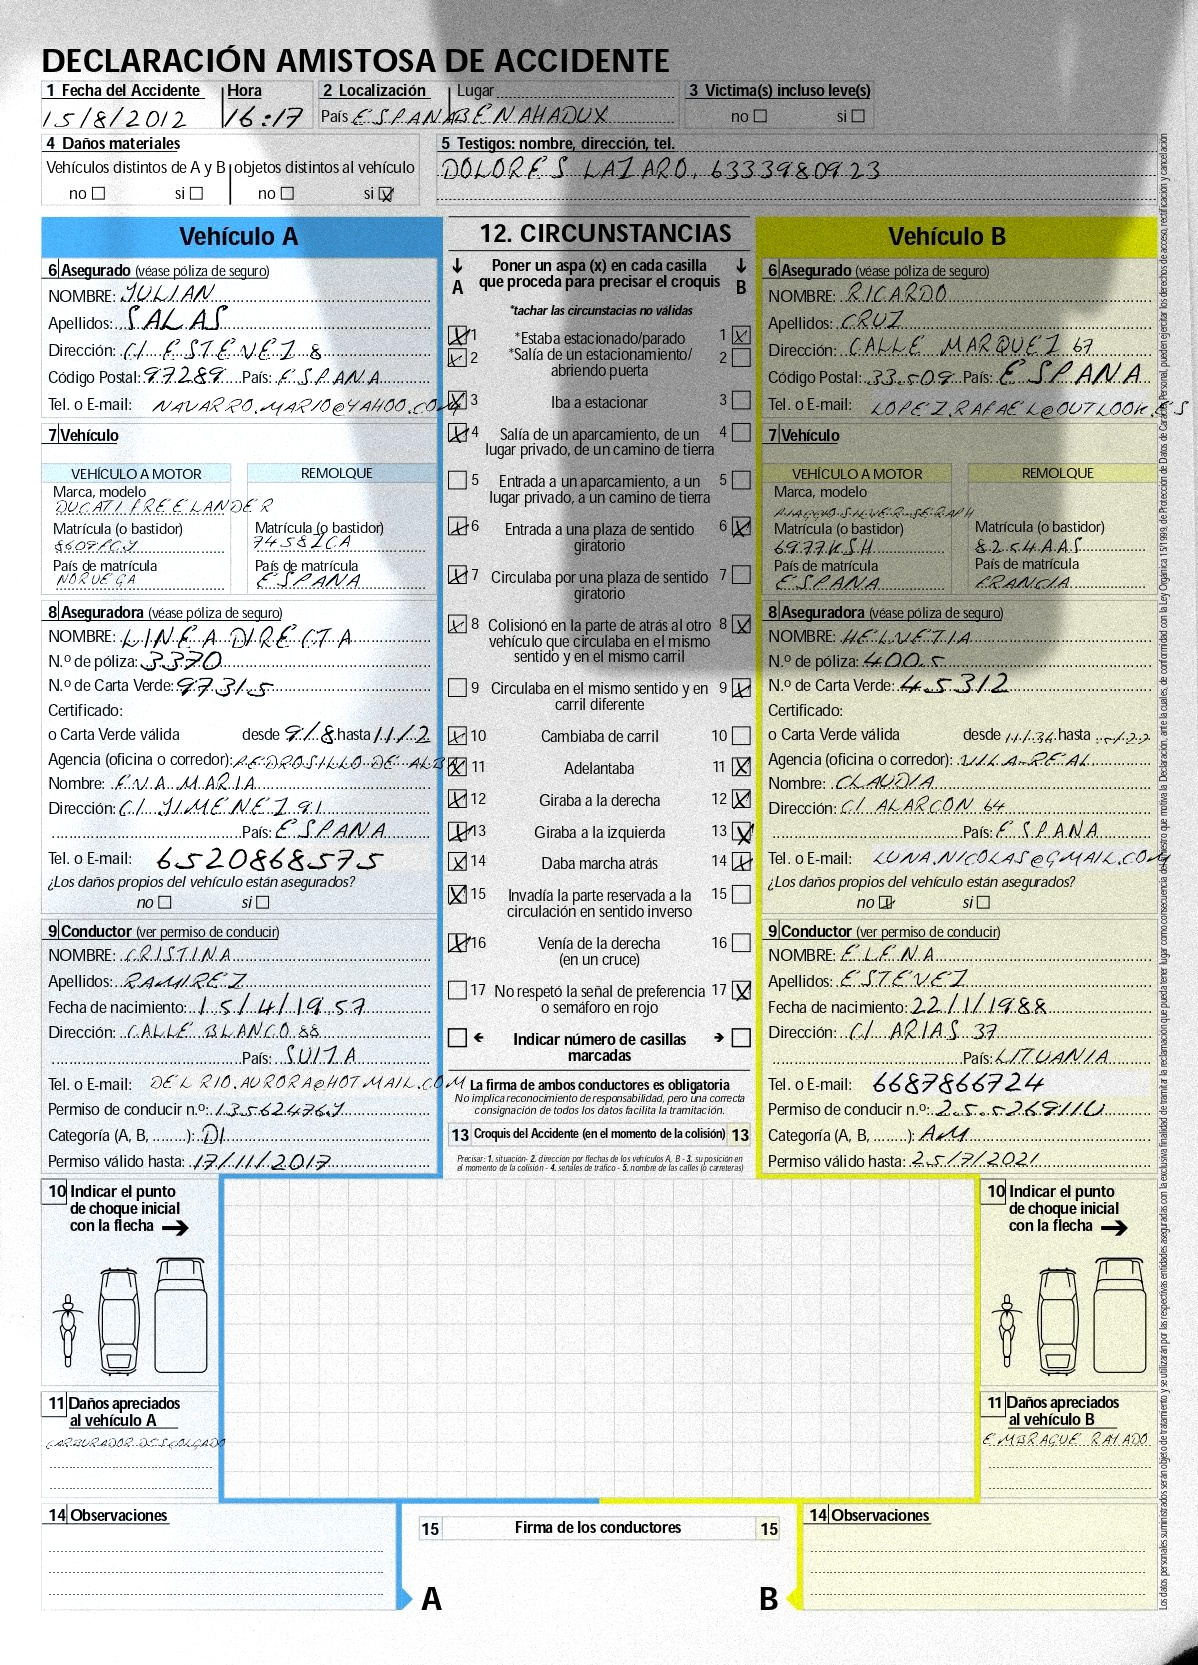 DECLARACIÓN AMISTOSA DE ACCIDENTE
1 Fecha del Accidente Hora 2 Localización Lugar 3 Victima(s) incluso leve(s)
15/8/2012 16:17 País ESPANA BENAHADUX no si
4 Daños materiales
Vehículos distintos de A y B objetos distintos al vehículo
no si no si X
5 Testigos: nombre, dirección, tel.
DOLORES LAZARO, 6333980923
Vehículo A
6 Asegurado (véase póliza de seguro)
NOMBRE: JULIAN
Apellidos: SALAS
Dirección: C/ ESTEVEZ 8
Código Postal: 97289 País: ESPANA
Tel. o E-mail: NAVARRO.MARIO@YAHOO.COM
7 Vehículo
VEHÍCULO A MOTOR REMOLQUE
Marca, modelo
DUCATI FREELANDER
Matrícula (o bastidor) Matrícula (o bastidor)
8609FCJ 7458ICA
País de matrícula País de matrícula
NORUEGA ESPANA
8 Aseguradora (véase póliza de seguro)
NOMBRE: LINEA DIRECTA
N.º de póliza: 3370
N.º de Carta Verde: 97315
Certificado:
o Carta Verde válida desde 9/8 hasta 11/2
Agencia (oficina o corredor): PEDROSILLO DE ALBA
Nombre: EVA MARIA
Dirección: C/ JIMENEZ 91
País: ESPANA
Tel. o E-mail: 6520868575
¿Los daños propios del vehículo están asegurados?
no si
9 Conductor (ver permiso de conducir)
NOMBRE: CRISTINA
Apellidos: RAMIREZ
Fecha de nacimiento: 15/4/1957
Dirección: CALLE BLANCO 88
País: SUIZA
Tel. o E-mail: DELRIO.AURORA@HOTMAIL.COM
Permiso de conducir n.º: 13562476J
Categoría (A, B, ........): D1
Permiso válido hasta: 17/11/2017
12. CIRCUNSTANCIAS
A Poner un aspa (x) en cada casilla que proceda para precisar el croquis B
*tachar las circunstacias no válidas
X 1 *Estaba estacionado/parado 1 X
X 2 *Salía de un estacionamiento/ 2
abriendo puerta
X 3 Iba a estacionar 3
X 4 Salía de un aparcamiento, de un 4
lugar privado, de un camino de tierra
5 Entrada a un aparcamiento, a un 5
lugar privado, a un camino de tierra
X 6 Entrada a una plaza de sentido 6 X
giratorio
X 7 Circulaba por una plaza de sentido 7
giratorio
X 8 Colisionó en la parte de atrás al otro 8 X
vehículo que circulaba en el mismo
sentido y en el mismo carril
9 Circulaba en el mismo sentido y en 9 X
carril diferente
X 10 Cambiaba de carril 10
X 11 Adelantaba 11 X
X 12 Giraba a la derecha 12 X
X 13 Giraba a la izquierda 13 X
X 14 Daba marcha atrás 14 X
X 15 Invadía la parte reservada a la 15
circulación en sentido inverso
X 16 Venía de la derecha 16
(en un cruce)
17 No respetó la señal de preferencia 17 X
o semáforo en rojo
Indicar número de casillas
marcadas
La firma de ambos conductores es obligatoria
No implica reconocimiento de responsabilidad, pero una correcta
consignación de todos los datos facilita la tramitación.
13 Croquis del Accidente (en el momento de la colisión) 13
Precisar: 1. situación- 2. dirección por flechas de los vehículos A, B - 3. su posición en
el momento de la colisión - 4. señales de tráfico - 5. nombre de las calles (o carreteras)
Vehículo B
6 Asegurado (véase póliza de seguro)
NOMBRE: RICARDO
Apellidos: CRUZ
Dirección: CALLE MARQUEZ 67
Código Postal: 33509 País: ESPANA
Tel. o E-mail: LOPEZ.RAFAEL@OUTLOOK.ES
7 Vehículo
VEHÍCULO A MOTOR REMOLQUE
Marca, modelo
PIAGGIO SILVER SERAPH
Matrícula (o bastidor) Matrícula (o bastidor)
6977KSH 8254AAS
País de matrícula País de matrícula
ESPANA FRANCIA
8 Aseguradora (véase póliza de seguro)
NOMBRE: HELVETIA
N.º de póliza: 4005
N.º de Carta Verde: 45312
Certificado:
o Carta Verde válida desde hasta
Agencia (oficina o corredor): VILA-REAL
Nombre: CLAUDIA
Dirección: C/ ALARCON 64
País: ESPANA
Tel. o E-mail: LUNA.NICOLAS@GMAIL.COM
¿Los daños propios del vehículo están asegurados?
no X si
9 Conductor (ver permiso de conducir)
NOMBRE: ELENA
Apellidos: ESTEVEZ
Fecha de nacimiento: 22/1/1988
Dirección: C/ ARIAS 37
País: LITUANIA
Tel. o E-mail: 6687866724
Permiso de conducir n.º: 25526911U
Categoría (A, B, ........): AM
Permiso válido hasta: 25/7/2021
10 Indicar el punto
de choque inicial
con la flecha
11 Daños apreciados
al vehículo A
CARBURADOR DESCOLGADO
10 Indicar el punto
de choque inicial
con la flecha
11 Daños apreciados
al vehículo B
EMBRAGUE RAYADO
14 Observaciones
15 Firma de los conductores 15
A B
14 Observaciones